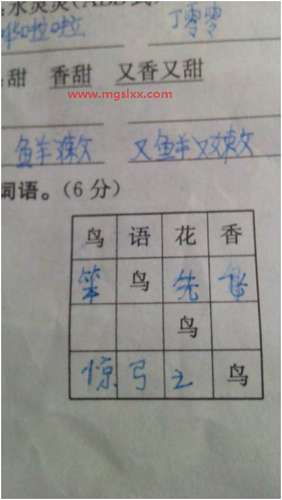 水灵灵(ABB
哗啦啦 丁零零
甜 香甜 又香又甜
www.mgslxx.com
鲜嫩 又鲜又嫩
词语。(6分)
鸟 语 花 香
笨 鸟 先 飞
鸟
惊 弓 之 鸟